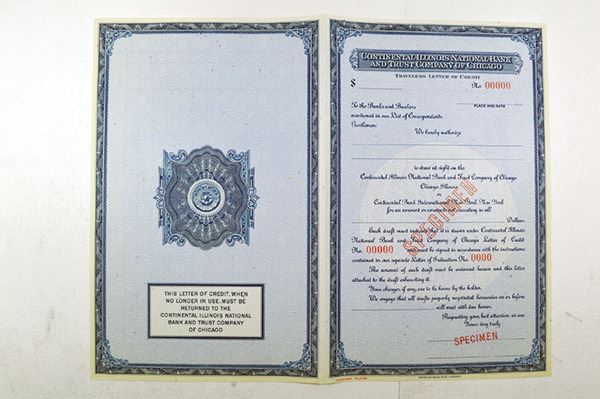 THIS LETTER OF CREDIT, WHEN
NO LONGER IN USE, MUST BE
RETURNED TO THE
CONTINENTAL ILLINOIS NATIONAL
BANK AND TRUST COMPANY
OF CHICAGO
CONTINENTAL ILLINOIS NATIONAL BANK
AND TRUST COMPANY OF CHICAGO
TRAVELERS LETTER OF CREDIT
$ No. 00000
PLACE AND DATE
To the Banks and Bankers
mentioned in our List of Correspondents.
Gentlemen:
We hereby authorize
to draw at sight on the
Continental Illinois National Bank and Trust Company of Chicago
Chicago, Illinois
or
Continental Bank International, New York, New York
for an amount or amounts not exceeding in all
Dollars.
Each draft must indicate that it is drawn under Continental Illinois
National Bank and Trust Company of Chicago Letter of Credit
No. 00000 and must be signed in accordance with the instructions
contained in our separate Letter of Indication No. 0000
The amount of each draft must be endorsed hereon and this letter
attached to the draft exhausting it.
Your charges, if any, are to be borne by the holder.
We engage that all drafts properly negotiated hereunder on or before
will meet with due honor.
Requesting your best attention, we are
Yours very truly
SPECIMEN
SPECIMEN